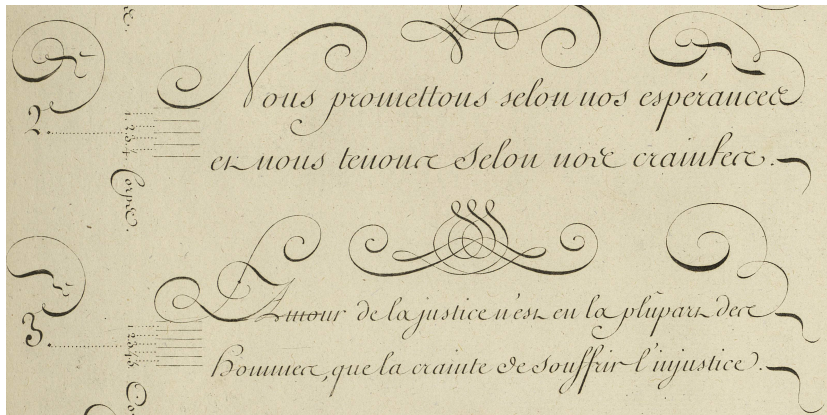 2.
Nous promettons selon nos espérances
et nous tenons selon nos craintes.
1 2 3 4 Corps.
3.
Amour de la justice n'est en la plûpart des
hommes, que la crainte de souffrir l'injustice.
1 2 3 4 5